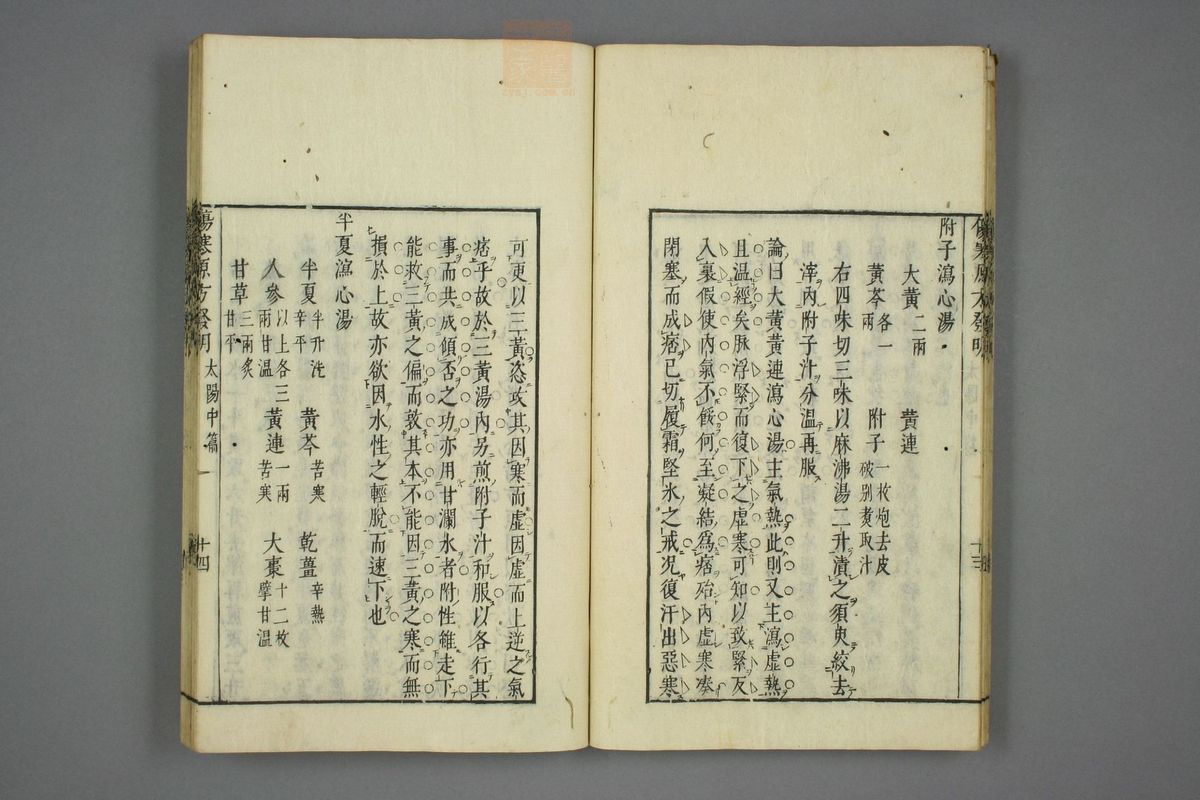 附子瀉心湯
大黃二兩 黃連
黃芩各一兩 附子一枚炮去皮破別煑取汁
右四味切三味以麻沸湯二升漬之須臾絞去
滓內附子汁分溫再服
論曰大黃黃連瀉心湯主氣熱此則又主瀉虛熱
且温經矣脉浮緊而復下之虛寒可知以致緊反
入裏假使內氣不餒何至凝結為痞殆內虛寒凑
閉塞而成痞已切履霜堅氷之戒况復汗出惡寒
可更以三黃恣攻其因寒而虛因虛而上逆之氣
痞乎故於三黃湯內另煎附子汁和服以各行其
事而共成傾否之功亦用甘瀾水者附性雖走下
能救三黃之偏而敦其本不能因三黃之寒而無
損於上故亦欲因水性之輕脫而速下也
半夏瀉心湯
半夏半升洗辛平 黃芩苦寒 乾薑辛熱
人參以上各三兩甘温 黃連一兩苦寒 大棗十二枚擘甘温
甘草三兩炙甘平
傷寒原方發明 太陽中篇 十四